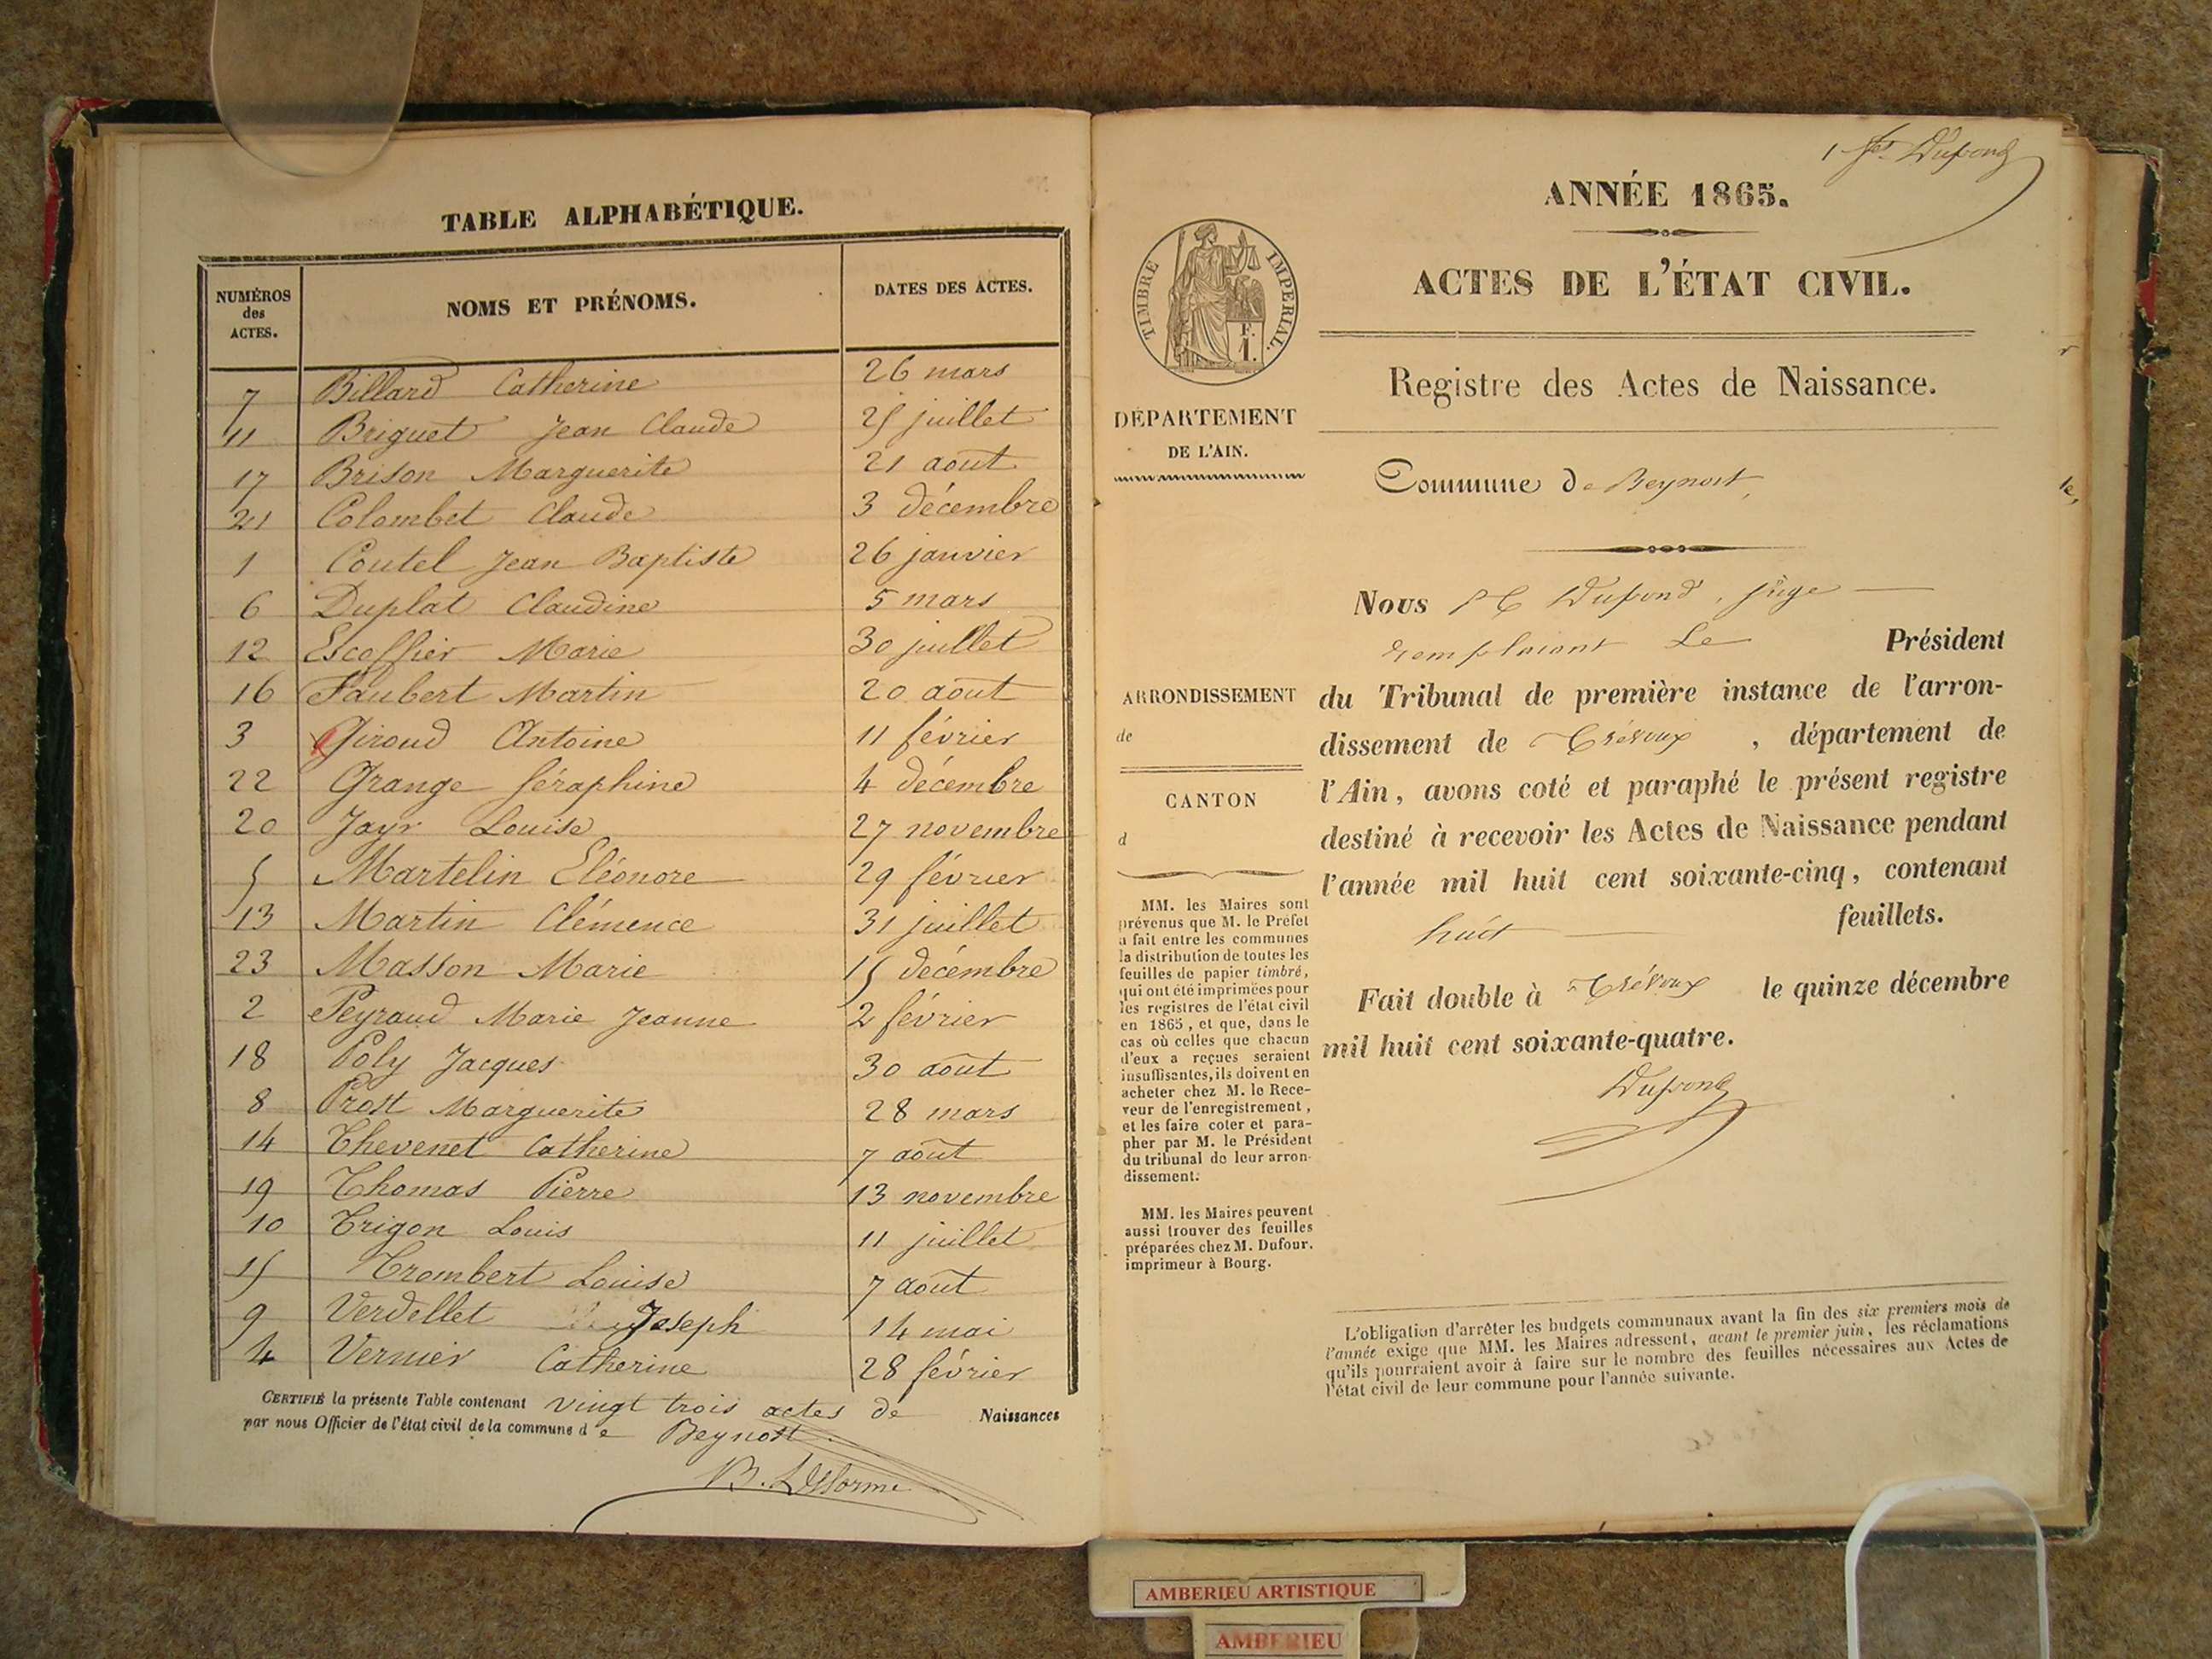 TABLE ALPHABÉTIQUE.
NUMÉROS des ACTES. NOMS ET PRÉNOMS. DATES DES ACTES.
7 Billard Catherine 26 mars
11 Briguet Jean Claude 25 juillet
17 Brison Marguerite 21 août
21 Colombet Claude 3 décembre
1 Coutel Jean Baptiste 26 janvier
6 Duplat Claudine 5 mars
12 Escoffier Marie 30 juillet
16 Faubert Martin 20 août
3 Giroud Antoine 11 février
22 Grange Séraphine 4 décembre
20 Jayr Louise 27 novembre
5 Martelin Eléonore 29 février
13 Martin Clémence 31 juillet
23 Masson Marie 15 décembre
2 Peyraud Marie Jeanne 2 février
18 Poly Jacques 30 août
8 Prost Marguerite 28 mars
14 Thevenet Catherine 7 août
19 Thomas Pierre 13 novembre
10 Trigon Louis 11 juillet
15 Trombert Louise 7 août
9 Verdellet Joseph 14 mai
4 Vernier Catherine 28 février
CERTIFIÉ la présente Table contenant vingt trois actes de Naissances
par nous Officier de l'état civil de la commune de Beynost.
1 Dupond
ANNÉE 1865.
ACTES DE L'ÉTAT CIVIL.
TIMBRE IMPERIAL.
F.
1.
Registre des Actes de Naissance.
DÉPARTEMENT
DE L'AIN.
Commune de Beynost
Nous Dupond, juge
remplaçant Le Président
ARRONDISSEMENT
de
CANTON
d
du Tribunal de première instance de l'arron-
dissement de Trévoux, département de
l'Ain, avons coté et paraphé le présent registre
destiné à recevoir les Actes de Naissance pendant
l'année mil huit cent soixante-cinq, contenant
huit feuillets.
Fait double à Trévoux le quinze décembre
mil huit cent soixante-quatre.
Dupond
MM. les Maires sont
prévenus que M. le Préfet
a fait entre les communes
la distribution de toutes les
feuilles de papier timbré,
qui ont été imprimées pour
les registres de l'état civil
en 1865, et que, dans le
cas où celles que chacun
d'eux a reçues seraient
insuffisantes, ils doivent en
acheter chez M. le Rece-
veur de l'enregistrement,
et les faire coter et para-
pher par M. le Président
du tribunal de leur arron-
dissement.
MM. les Maires peuvent
aussi trouver des feuilles
préparées chez M. Dufour,
imprimeur à Bourg.
L'obligation d'arrêter les budgets communaux avant la fin des six premiers mois de
l'année exige que MM. les Maires adressent, avant le premier juin, les réclamations
qu'ils pourraient avoir à faire sur le nombre des feuilles nécessaires aux Actes de
l'état civil de leur commune pour l'année suivante.
AMBERIEU ARTISTIQUE
AMBERIEU